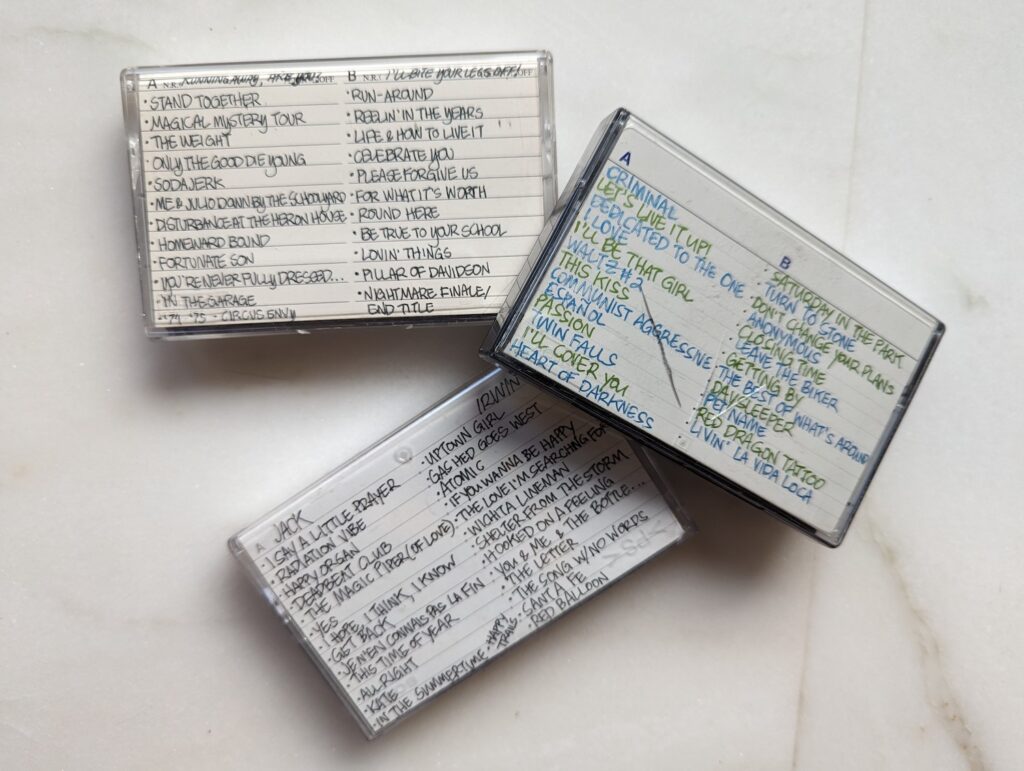 A N.R. RUNNING AWAY, ARE YOU? OFF
· STAND TOGETHER
· MAGICAL MYSTERY TOUR
· THE WEIGHT
· ONLY THE GOOD DIE YOUNG
· SODAJERK
· ME & JULIO DOWN BY THE SCHOOLYARD
· DISTURBANCE AT THE HERON HOUSE
· HOMEWARD BOUND
· FORTUNATE SON
· YOU'RE NEVER FULLY DRESSED...
· IN THE GARAGE
· '74 '75 · CIRCUS ENVY
B N.R. I'LL BITE YOUR LEGS OFF! OFF
· RUN-AROUND
· REELIN' IN THE YEARS
· LIFE & HOW TO LIVE IT
· CELEBRATE YOU
· PLEASE FORGIVE US
· FOR WHAT IT'S WORTH
· ROUND HERE
· BE TRUE TO YOUR SCHOOL
· LOVIN' THINGS
· PILLAR OF DAVIDSON
· NIGHTMARE FINALE/
END TITLE
A
CRIMINAL
LET'S LIVE IT UP!
DEDICATED TO THE ONE
I LOVE
I'LL BE THAT GIRL
WALTZ #2
THIS KISS
COMMUNIST AGGRESSIVE
ESPAÑOL
PASSION
TWIN FALLS
I'LL COVER YOU
HEART OF DARKNESS
B
· SATURDAY IN THE PARK
· TURN TO STONE
· DON'T CHANGE YOUR PLANS
· ANONYMOUS
· CLOSING TIME
· LEAVE THE BIKER
· GETTING BY
· THE BEST OF WHAT'S AROUND
· DAYSLEEPER
· PET NAME
· RED DRAGON TATTOO
· LIVIN' LA VIDA LOCA
A JACK
· I SAY A LITTLE PRAYER
· RADIATION VIBE
· HAPPY ORGAN
· DEADBEAT CLUB
· THE MAGIC PIPER (OF LOVE)
· YES
· I HOPE, I THINK, I KNOW
· GET BACK
· JE N'EN CONNAIS PAS LA FIN
· THIS TIME OF YEAR
· ALL RIGHT
· KATE
· IN THE SUMMERTIME · HAPPY TRAILS
IRWIN
· UPTOWN GIRL
· GAS HED GOES WEST
· ATOMIC
· IF YOU WANNA BE HAPPY
· THE LOVE I'M SEARCHING FOR
· WICHITA LINEMAN
· SHELTER FROM THE STORM
· HOOKED ON A FEELING
· YOU & ME & THE BOTTLE...
· THE LETTER
· THE SONG W/NO WORDS
· SANTA FE
· RED BALLOON